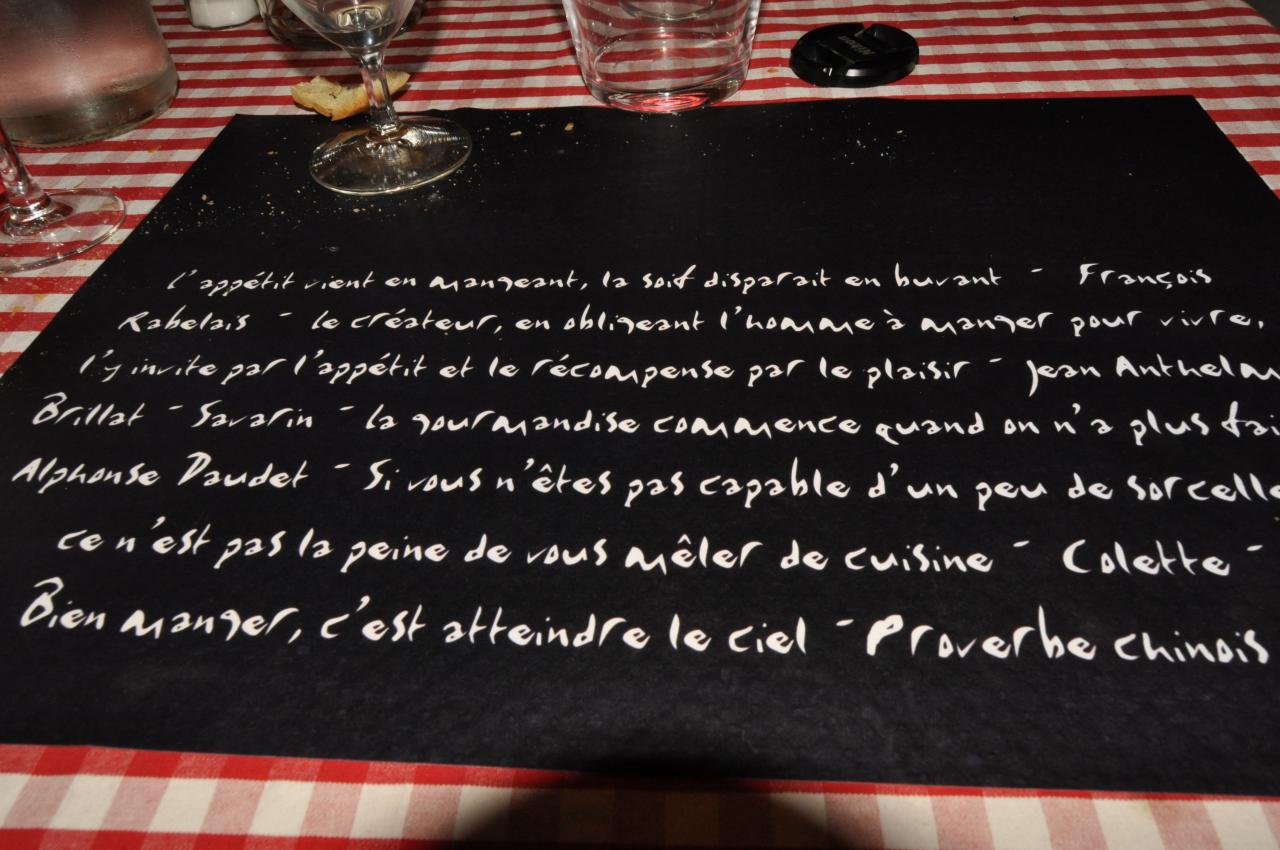 Nikon
L'appétit vient en mangeant, la soif disparait en buvant - François
Rabelais - Le créateur, en obligeant l'homme à manger pour vivre,
l'y invite par l'appétit et le récompense par le plaisir - Jean Anthelm
Brillat - Savarin - La gourmandise commence quand on n'a plus fai
Alphonse Daudet - Si vous n'êtes pas capable d'un peu de sorcelle
ce n'est pas la peine de vous mêler de cuisine - Colette -
Bien manger, c'est atteindre le ciel - Proverbe chinois